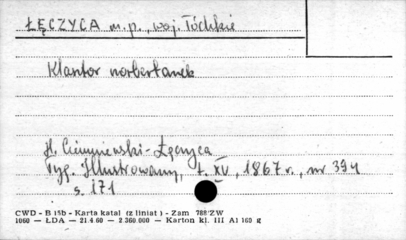 ŁĘCZYCA m. p., woj. Łódzkie
Klasztor norbertanek
H. Cieszniewski - Łęczyca
Tyg. Illustrowany, t. XV, 1867 r., nr 394
s. 171
CWD - B 15b - Karta katal (z liniat) - Zam 788/ZW
1060 — ŁDA — 21.4.60 — 2 360.000 — Karton kl. III A1 160 g